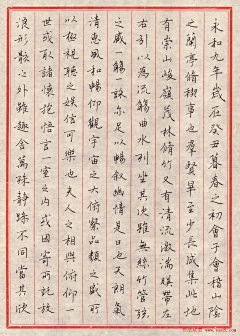 永和九年歲在癸丑暮春之初會于會稽山陰
之蘭亭脩稧事也群賢畢至少長咸集此地
有崇山峻嶺茂林脩竹又有清流激湍暎帶左
右引以為流觴曲水列坐其次雖無絲竹管弦
之盛一觴一詠亦足以暢敘幽情是日也天朗氣
清惠風和暢仰觀宇宙之大俯察品類之盛所
以極視聽之娛信可樂也夫人之相與俯仰一
世或取諸懷抱悟言一室之內或因寄所託放
浪形骸之外雖趣舍萬殊靜躁不同當其欣